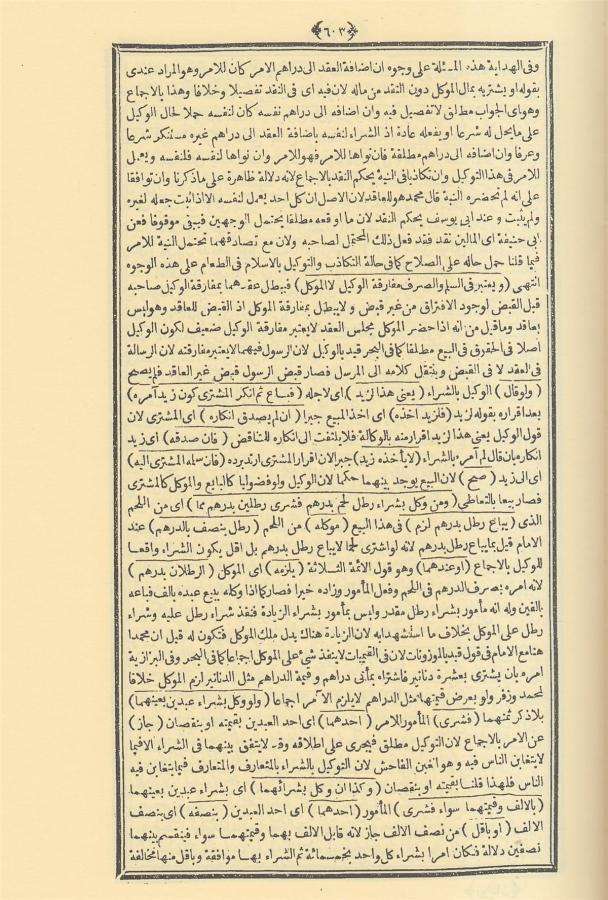 ﴿٦٠٣﴾
وفى الهداية هذه المسئلة على وجوه ان اضافة العقد الى دراهم الامر كان للامر وهو المراد عندى
بقوله او يشتريه بمال الموكل دون النقد من ماله لان فيه اى فى النقد تفصيلا وخلافا وهذا بالاجماع
وهو اى الجواب مطلق لا تفصيل فيه وان اضافه الى دراهم نفسه كان لنفسه حملا لحال الوكيل
على ما يحل له شرعا او يفعله عادة اذ الشراء لنفسه باضافة العقد الى دراهم غيره مستنكر شرعا
وعرفا وان اضافه الى دراهم مطلقة فان نواها للامر فهو للامر وان نواها لنفسه فلنفسه ويعمل
للامر فى هذا التوكيل وان تكاذبا فى النية يحكم النقد بالاجماع لانه دلالة ظاهرة على ما ذكرنا وان توافقا
على انه لم تحضره النية قال محمد هو للعاقد لان الاصل ان كل احد يعمل لنفسه الا اذا ثبت جعله لغيره
ولم يثبت وعند ابى يوسف يحكم النقد لان ما اوقعه مطلقا يحتمل الوجهين فيبقى موقوفا فعن
ابى حنيفة اى المالين نقد فقد فعل ذلك المحتمل لصاحبه ولان مع تصادقهما تحتمل النية للامر
فيما قلنا حمل حاله على الصلاح كما فى حالة التكاذب والتوكيل بالاسلام فى الطعام على هذه الوجوه
انتهى (ويعتبر فى السلم والصرف مفارقة الوكيل لا الموكل) فيبطل عقدهما بمفارقة الوكيل صاحبه
قبل القبض لوجود الافتراق من غير قبض ولا يبطل بمفارقة الموكل اذ القبض للعاقد وهو ليس
بعاقد وما قيل من انه اذا حضر الموكل مجلس العقد لا يعتبر مفارقة الوكيل ضعيف لكون الوكيل
اصلا فى الحقوق فى البيع مطلقا كما فى البحر قيد بالوكيل لان الرسول فيهما لا يعتبر مفارقته لان الرسالة
فى العقد لا فى القبض وينتقل كلامه الى المرسل فصار قبض الرسول قبض غير العاقد فلم يصح
(ولو قال) الوكيل بالشراء (بعنى هذا لزيد) اى لاجله (فباع ثم انكر المشترى كون زيد آمره)
بعد اقراره بقوله لزيد (فلزيد اخذه) اى اخذ المبيع جبرا (ان لم يصدق انكاره) اى المشترى لان
قول الوكيل بعنى هذا لزيد اقرار منه بالوكالة فلا يلتفت الى انكاره للتناقض (فان صدقه) اى زيد
انكاره بان قال لم آمره بالشراء (لا يأخذه زيد) جبرا لان اقرار المشترى ارتد برده (فان سلمه المشترى اليه)
اى الى زيد (صح) لان البيع يوجد بينهما حكما لان الوكيل ولو فضوليا كالبايع والموكل كالمشترى
فصار بيعا بالتعاطى (ومن وكل بشراء رطل لحم بدرهم فشرى رطلين بدرهم مما) اى من اللحم
الذى (يباع رطل بدرهم لزم) فى هذا البيع (موكله) من اللحم (رطل بنصف بالدرهم) عند
الامام قيل بما يباع رطل بدرهم لانه لو اشترى لحما لا يباع رطل بدرهم بل اقل يكون الشراء واقعا
للوكيل بالاجماع (وعندهما) وهو قول الائمة الثلاثة (يلزمه) اى الموكل (الرطلان بدرهم)
لانه امره بصرف الدرهم فى اللحم وفعل المأمور وزاده خيرا فصار كما اذا وكله ببيع عبده بالف فباعه
بالفين وله انه مأمور بشراء رطل مقدر وليس بمأمور بشراء الزيادة فنفذ شراء رطل عليه وشراء
رطل على الموكل بخلاف ما استشهدا به لان الزيادة هناك بدل ملك الموكل فتكون له قيل ان محمدا
هنا مع الامام فى قول قيد بالموزونات لان فى القيميات لا ينفذ شئ على الموكل اجماعا كما فى البحر وفى البزازية
امره بان يشترى بعشرة دنانير فاشتراه بمأتى دراهم وقيمة الدراهم مثل الدنانير لزم الموكل خلافا
لمحمد وزفر ولو بعرض قيمتها مثل الدراهم لا يلزم الآمر اجماعا (ولو وكل بشراء عبدين بعينهما)
بلا ذكر ثمنهما (فشرى) المأمور للامر (احدهما) اى احد العبدين بقيمته او بنقصان (جاز)
عن الامر بالاجماع لان التوكيل مطلق فيجرى على اطلاقه وقد لا يتفق بينهما فى الشراء الا فيما
لا يتغابن الناس فيه وهو الغبن الفاحش لان التوكيل بالشراء بالمتعارف والمتعارف فيما يتغابن فيه
الناس فلهذا قلنا بقيمته او بنقصان (وكذا ان وكل بشرائهما) اى بشراء عبدين بعينهما
(بالالف وقيمتهما سواء فشرى) المأمور (احدهما) اى احد العبدين (بنصفه) اى بنصف
الالف (او باقل) من نصف الالف جاز لانه قابل الالف بهما وقيمتهما سواء فينقسم بينهما
نصفين دلالة فكان امرا بشراء كل واحد بخمسمائة ثم الشراء بها موافقة وباقل منها مخالفة